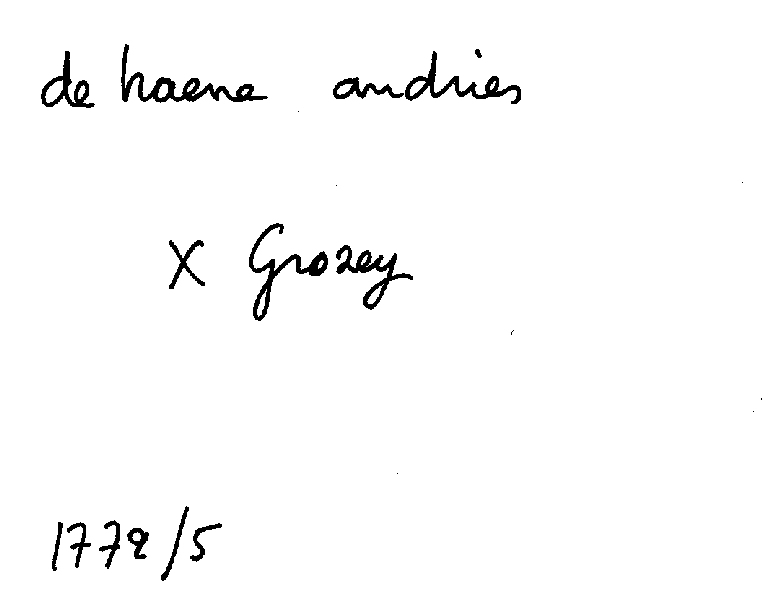 de haene andries
X Grozey
1772/5